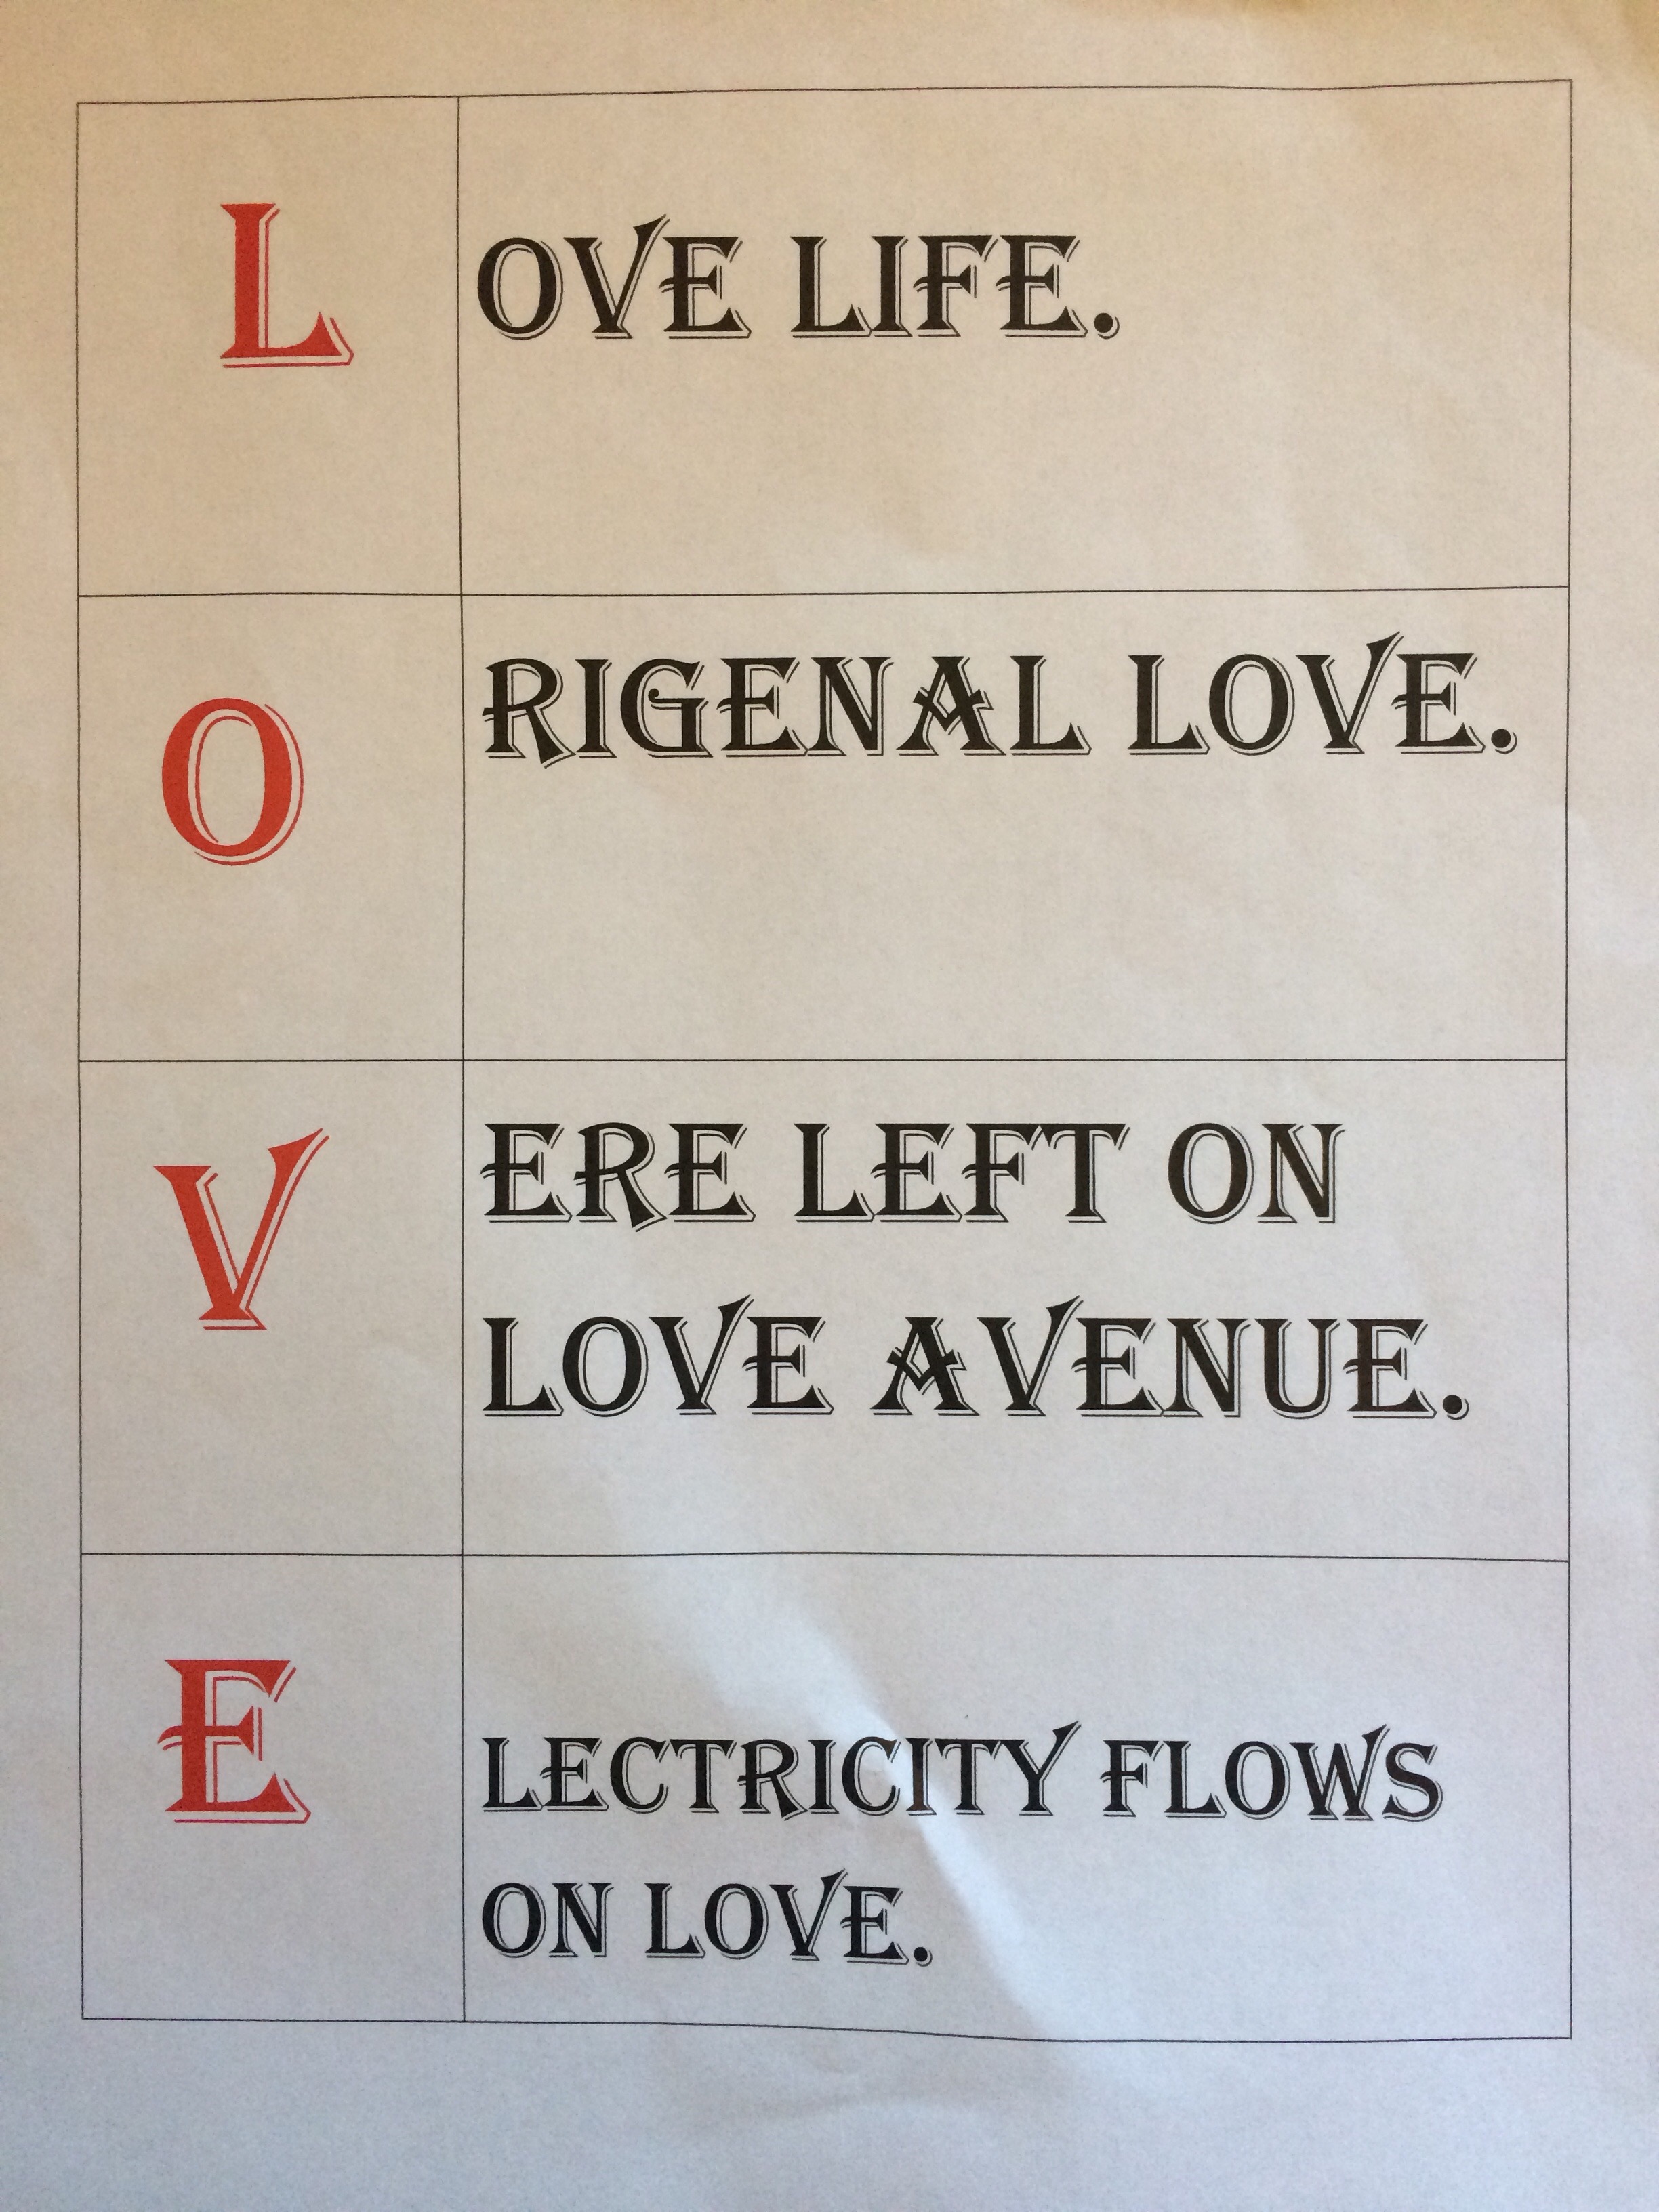 L OVE LIFE.
O RIGENAL LOVE.
V ERE LEFT ON
LOVE AVENUE.
E LECTRICITY FLOWS
ON LOVE.